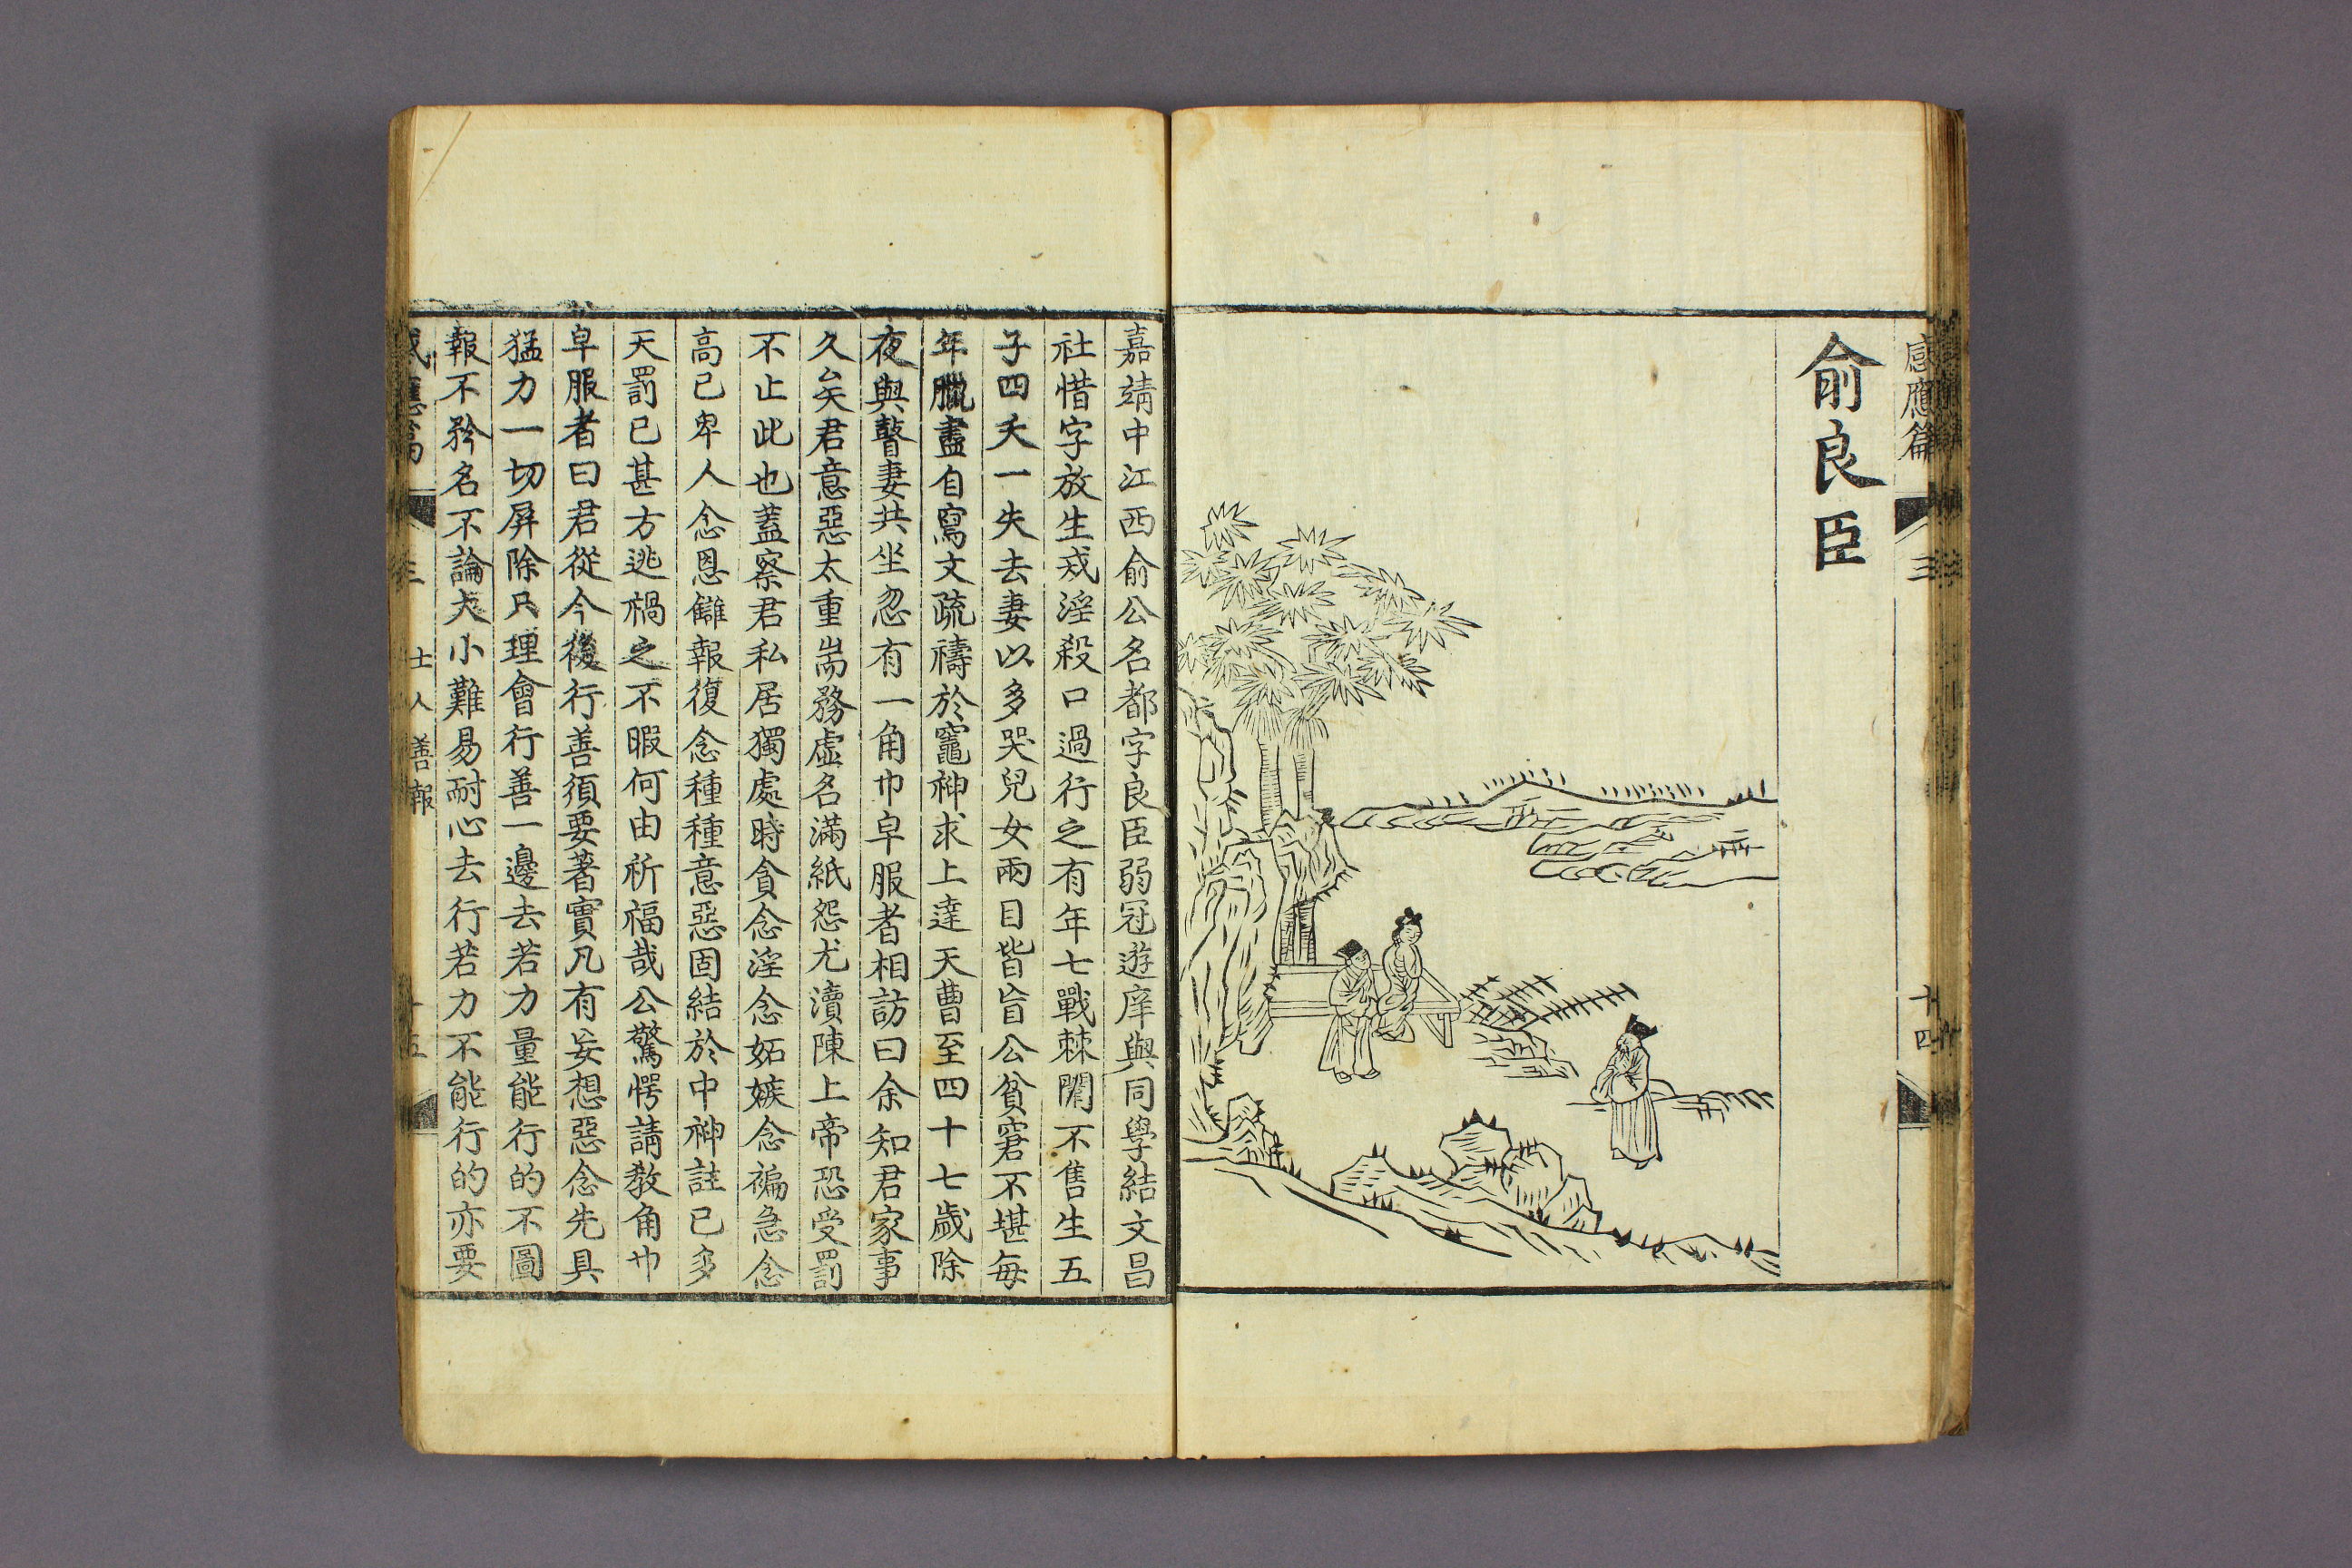 感應篇 三 十四
俞良臣
嘉靖中江西俞公名都字良臣弱冠遊庠與同學結文昌
社惜字放生戒淫殺口過行之有年七戰棘闈不售生五
子四夭一失去妻以多哭兒女兩目皆盲公貧窘不堪每
年臘盡自寫文疏禱於竈神求上達天曹至四十七歲除
夜與瞽妻共坐忽有一角巾皁服者相訪曰余知君家事
久矣君意惡太重耑務虛名滿紙怨尤瀆陳上帝恐受罰
不止此也蓋察君私居獨處時貪念淫念妬嫉念褊急念
高己卑人念恩讎報復念種種意惡固結於中神註已多
天罰已甚方逃禍之不暇何由祈福哉公驚愕請教角巾
皁服者曰君從今後行善須要著實凡有妄想惡念先具
猛力一切屏除只理會行善一邊去若力量能行的不圖
報不矜名不論大小難易耐心去行若力不能行的亦要
感應篇 三 士人善報 十五